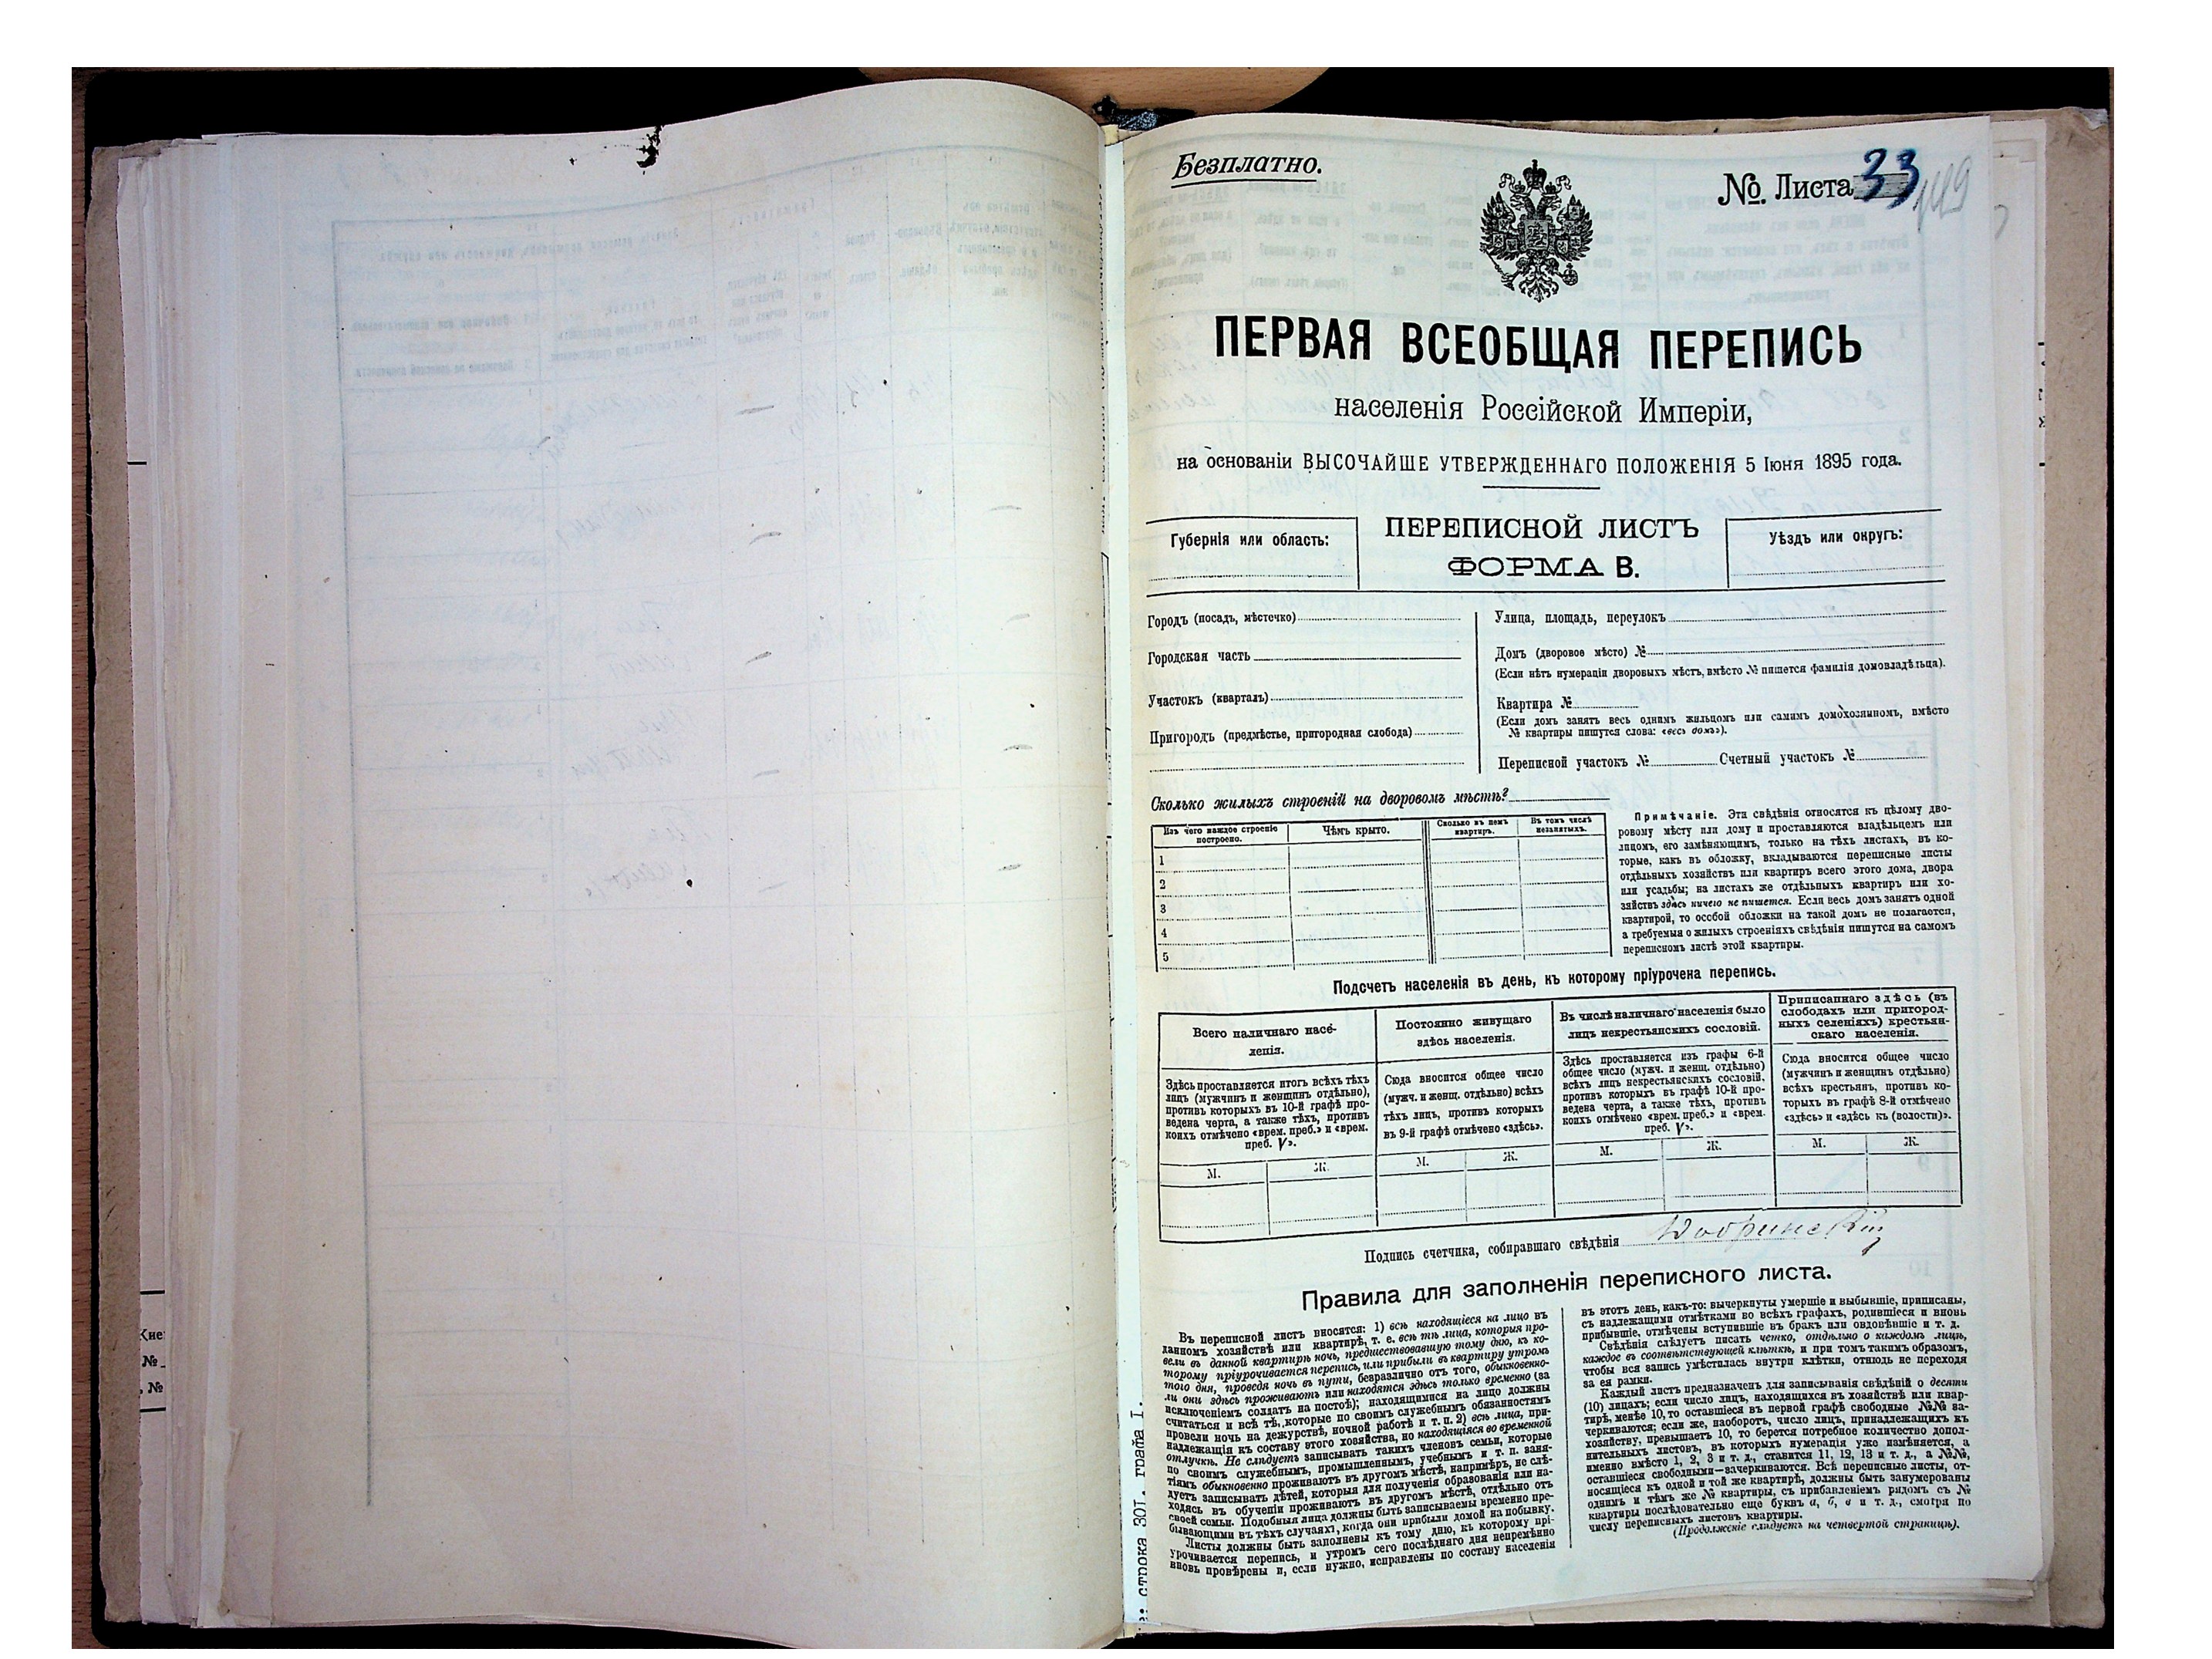 Безплатно.
№. Листа 33
149
ПЕРВАЯ ВСЕОБЩАЯ ПЕРЕПИСЬ
населенія Россійской Имперіи,
на основаніи ВЫСОЧАЙШЕ УТВЕРЖДЕННАГО ПОЛОЖЕНІЯ 5 Іюня 1895 года.
Губернія или область:
ПЕРЕПИСНОЙ ЛИСТЪ
ФОРМА В.
Уѣздъ или округъ:
Городъ (посадъ, мѣстечко)
Городская часть
Участокъ (кварталъ)
Пригородъ (предмѣстье, пригородная слобода)
Улица, площадь, переулокъ
Домъ (дворовое мѣсто) №
(Если нѣтъ нумераціи дворовыхъ мѣстъ, вмѣсто № пишется фамилія домовладѣльца).
Квартира №
(Если домъ занятъ весь однимъ жильцомъ или самимъ домохозяиномъ, вмѣсто
№ квартиры пишутся слова: «весь домъ»).
Переписной участокъ № Счетный участокъ №
Сколько жилыхъ строеній на дворовомъ мѣстѣ?
Изъ чего каждое строеніе
построено.
Чѣмъ крыто.
Сколько въ немъ
квартиръ.
Въ томъ числѣ
незанятыхъ.
1
2
3
4
5
Примѣчаніе. Эти свѣдѣнія относятся къ цѣлому дво-
ровому мѣсту или дому и проставляются владѣльцемъ или
лицомъ, его замѣняющимъ, только на тѣхъ листахъ, въ ко-
торые, какъ въ обложку, вкладываются переписные листы
отдѣльныхъ хозяйствъ или квартиръ всего этого дома, двора
или усадьбы; на листахъ же отдѣльныхъ квартиръ или хо-
зяйствъ здѣсь ничего не пишется. Если весь домъ занятъ одной
квартирой, то особой обложки на такой домъ не полагается,
а требуемыя о жилыхъ строеніяхъ свѣдѣнія пишутся на самомъ
переписномъ листѣ этой квартиры.
Подсчетъ населенія въ день, къ которому пріурочена перепись.
Всего наличнаго насе-
ленія.
Здѣсь проставляется итогъ всѣхъ тѣхъ
лицъ (мужчинъ и женщинъ отдѣльно),
противъ которыхъ въ 10-й графѣ про-
ведена черта, а также тѣхъ, противъ
коихъ отмѣчено «врем. преб.» и «врем.
преб. V».
М. Ж.
Постоянно живущаго
здѣсь населенія.
Сюда вносится общее число
(мужч. и женщ. отдѣльно) всѣхъ
тѣхъ лицъ, противъ которыхъ
въ 9-й графѣ отмѣчено «здѣсь».
М. Ж.
Въ числѣ наличнаго населенія было
лицъ некрестьянскихъ сословій.
Здѣсь проставляется изъ графы 6-й
общее число (мужч. и женщ. отдѣльно)
всѣхъ лицъ некрестьянскихъ сословій,
противъ которыхъ въ графѣ 10-й про-
ведена черта, а также тѣхъ, противъ
коихъ отмѣчено «врем. преб.» и «врем.
преб. V».
М. Ж.
Приписаннаго здѣсь (въ
слободахъ или пригород-
ныхъ селеніяхъ) крестьян-
скаго населенія.
Сюда вносится общее число
(мужчинъ и женщинъ отдѣльно)
всѣхъ крестьянъ, противъ ко-
торыхъ въ графѣ 8-й отмѣчено
«здѣсь» и «здѣсь къ (волости)».
М. Ж.
Подпись счетчика, собиравшаго свѣдѣнія Добринскій
Правила для заполненія переписного листа.
Въ переписной листъ вносятся: 1) всѣ находящіеся на лицо въ
данномъ хозяйствѣ или квартирѣ, т. е. всѣ тѣ лица, которыя про-
вели въ данной квартирѣ ночь, предшествовавшую тому дню, къ ко-
торому пріурочивается перепись, или прибыли въ квартиру утромъ
того дня, проведя ночь въ пути, безразлично отъ того, обыкновенно-
ли они здѣсь проживаютъ или находятся здѣсь только временно (за
исключеніемъ солдатъ на постоѣ); находящимися на лицо должны
считаться и всѣ тѣ, которые по своимъ служебнымъ обязанностямъ
провели ночь на дежурствѣ, ночной работѣ и т. п. 2) всѣ лица, при-
надлежащія къ составу этого хозяйства, но находящіяся во временной
отлучкѣ. Не слѣдуетъ записывать такихъ членовъ семьи, которые
по своимъ служебнымъ, промышленнымъ, учебнымъ и т. п. заня-
тіямъ обыкновенно проживаютъ въ другомъ мѣстѣ, напримѣръ, не слѣ-
дуетъ записывать дѣтей, которыя для полученія образованія или на-
ходясь въ обученіи проживаютъ въ другомъ мѣстѣ, отдѣльно отъ
своей семьи. Подобныя лица должны быть записываемы временно пре-
бывающими въ тѣхъ случаяхъ, когда они прибыли домой на побывку.
Листы должны быть заполнены къ тому дню, къ которому прі-
урочивается перепись, и утромъ сего послѣдняго дня непремѣнно
вновь провѣрены и, если нужно, исправлены по составу населенія
въ этотъ день, какъ-то: вычеркнуты умершіе и выбывшіе, приписаны,
съ надлежащими отмѣтками во всѣхъ графахъ, родившіеся и вновь
прибывшіе, отмѣчены вступившіе въ бракъ или овдовѣвшіе и т. д.
Свѣдѣнія слѣдуетъ писать четко, отдѣльно о каждомъ лицѣ,
каждое въ соотвѣтствующей клѣткѣ, и при томъ такимъ образомъ,
чтобы вся запись умѣстилась внутри клѣтки, отнюдь не переходя
за ея рамки.
Каждый листъ предназначенъ для записыванія свѣдѣній о десяти
(10) лицахъ; если число лицъ, находящихся въ хозяйствѣ или квар-
тирѣ, менѣе 10, то оставшіеся въ первой графѣ свободные №№ за-
черкиваются; если же, наоборотъ, число лицъ, принадлежащихъ къ
хозяйству, превышаетъ 10, то берется потребное количество допол-
нительныхъ листовъ, въ которыхъ нумерація уже измѣняется, а
именно вмѣсто 1, 2, 3 и т. д., ставится 11, 12, 13 и т. д., а №№,
оставшіеся свободными—зачеркиваются. Всѣ переписные листы, от-
носящіеся къ одной и той же квартирѣ, должны быть занумерованы
однимъ и тѣмъ же № квартиры, съ прибавленіемъ рядомъ съ №
квартиры послѣдовательно еще буквъ а, б, в и т. д., смотря по
числу переписныхъ листовъ квартиры.
(Продолженіе слѣдуетъ на четвертой страницѣ).
строка 30т. графа I.